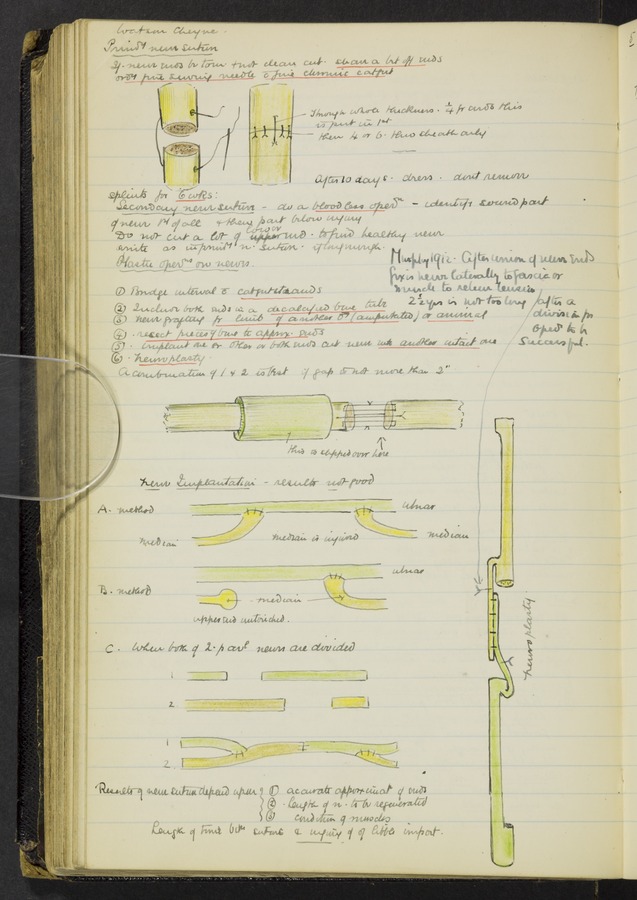 Watson Cheyne.
Primy nerve suture
If nerve ends be torn & not clean cut. shave a bit off ends
ordy fine sewing needle & fine chromic catgut
Through whole thickness. ¼ fr ends this
is put in 1st
then 4 or 6. thro sheath only
After 10 days. dress. dont remove
splints for 6 wks:
Secondary nerve suture - do a bloodless opern - identify sound part
of nerve 1st of all & then part below injury
Do not cut a lot of lower upper end. to find healthy nerve
unite as in primy n. suture.
Plastic opers on nerves.
Murphy 1912. After union of nerve ends
fix is nerve laterally to fascia or
muscle to relieve tension
2½ yrs is not too long after a
division for
opern to be
successful.
① Bridge interval c catgut strands
② Inclose both ends in a decalcified bone tube
③ nerve grafting fr limb of another pt (amputated) or animal
④ resect piece of bone to approx. ends
⑤ Implant one or other or both ends cut nerve into another intact one
⑥ neuroplasty
A combination of 1 & 2 is best if gap is not more than 2"
this is slipped over here
Nerve Implantation - results not good
A. method
ulnar
median
median is injured
median
ulnar
B. method
median
upper end untouched.
neuroplasty
C. When both of 2 parl nerves are divided
1
2
1
2
Results of nerve suture depend upon
① accurate approximat of ends
② length of n. to be regenerated
③ condition of muscles
Length of time betn suture & injury is of little import.